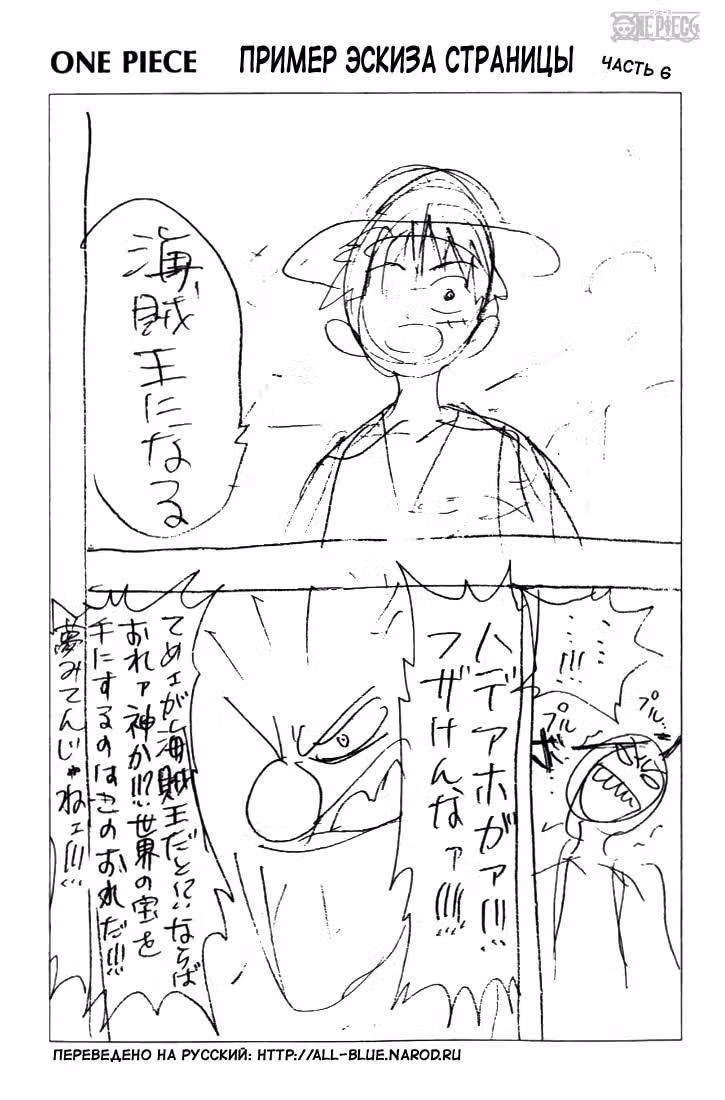 ONE PIECE
ONE PIECE ПРИМЕР ЭСКИЗА СТРАНИЦЫ ЧАСТЬ 6
海賊王になる
!!!
プル…
プル…
ハデアホがァ!!!
フザけんなァ!!!!
てめェが海賊王だと!?ならば
おれァ神か!!?世界の宝を
手にするのはこのおれだ!!!
夢みてんじゃねェ!!!!
ПЕРЕВЕДЕНО НА РУССКИЙ: HTTP://ALL-BLUE.NAROD.RU